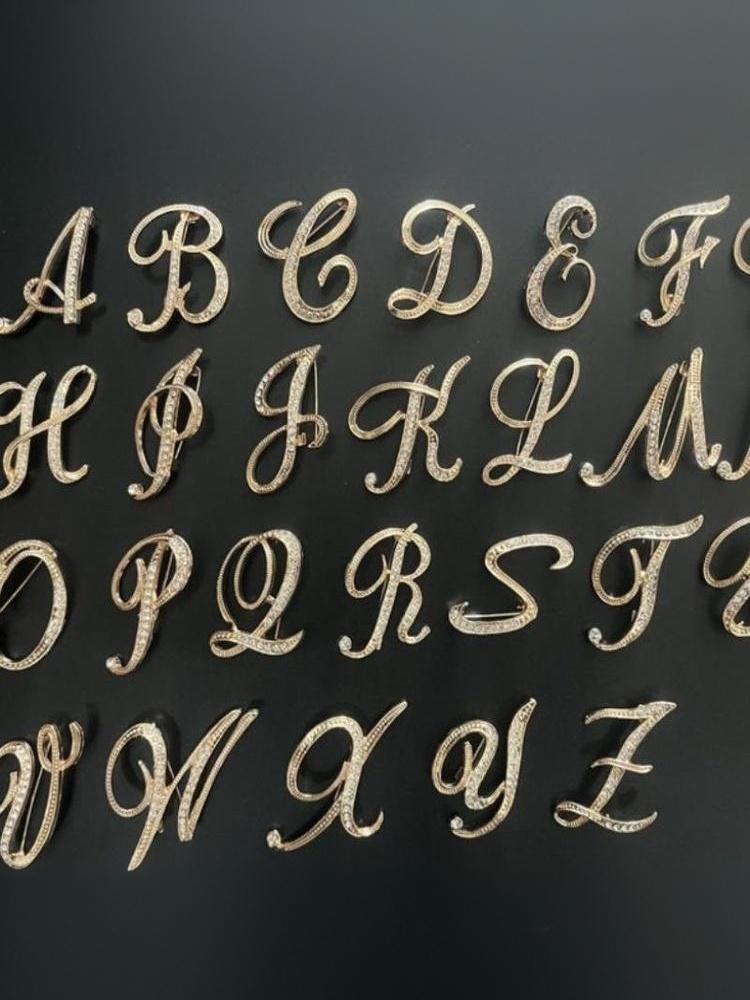 A B C D E F
H I J K L M
O P Q R S T
V W X Y Z